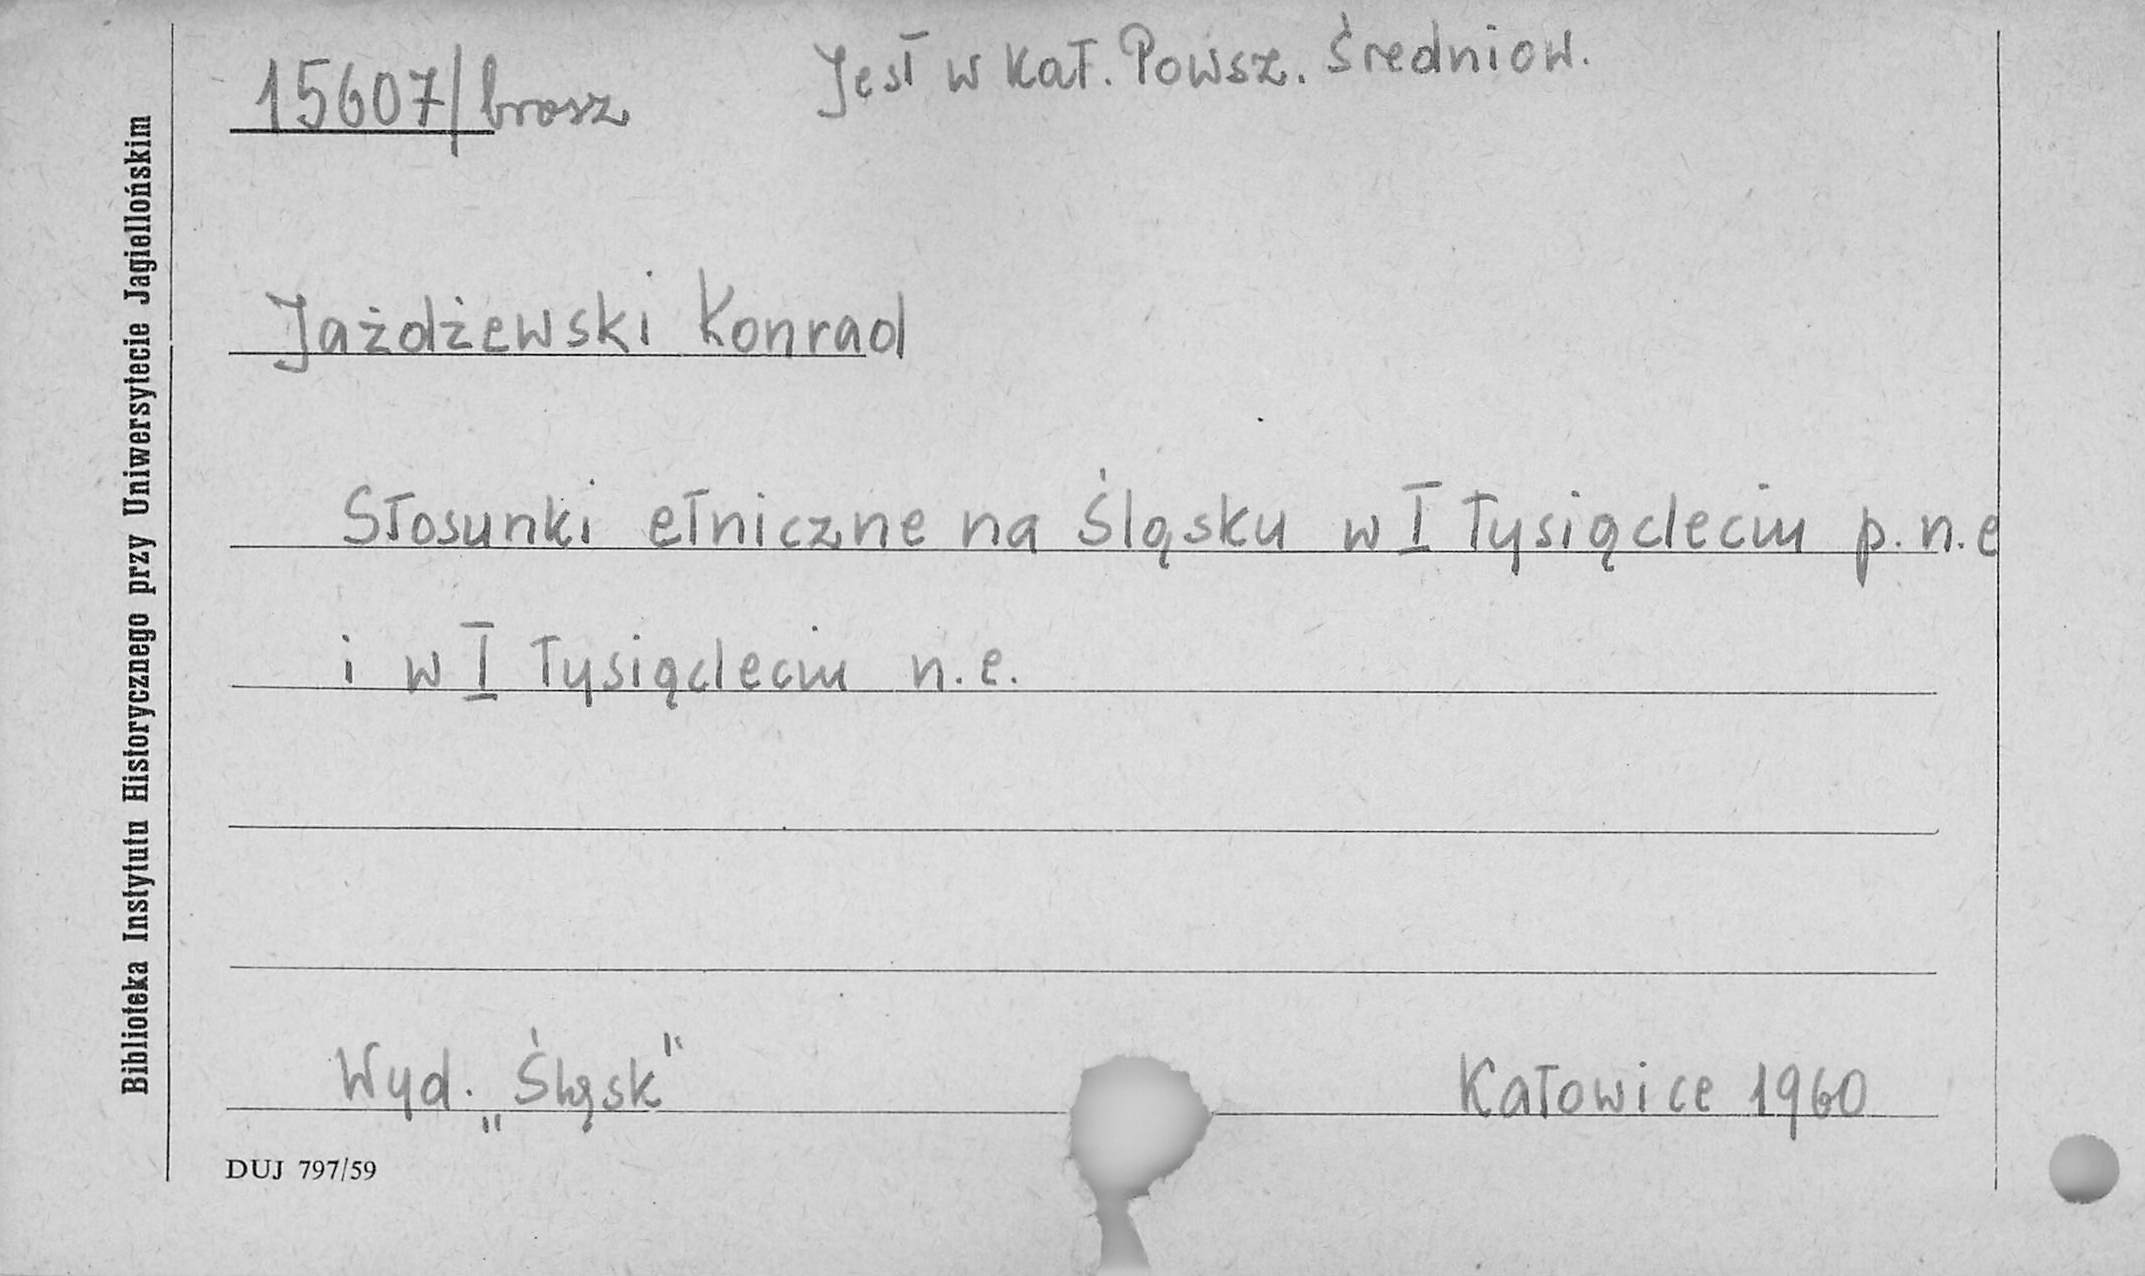 15607/brosz
Jest w Kat. Powsz. Średniow.
Jażdżewski Konrad
Stosunki etniczne na Śląsku w I tysiącleciu p.n.e
i w I tysiącleciu n.e.
Wyd. „Śląsk" Katowice 1960
DUJ 797/59
Biblioteka Instytutu Historycznego przy Uniwersytecie Jagiellońskim